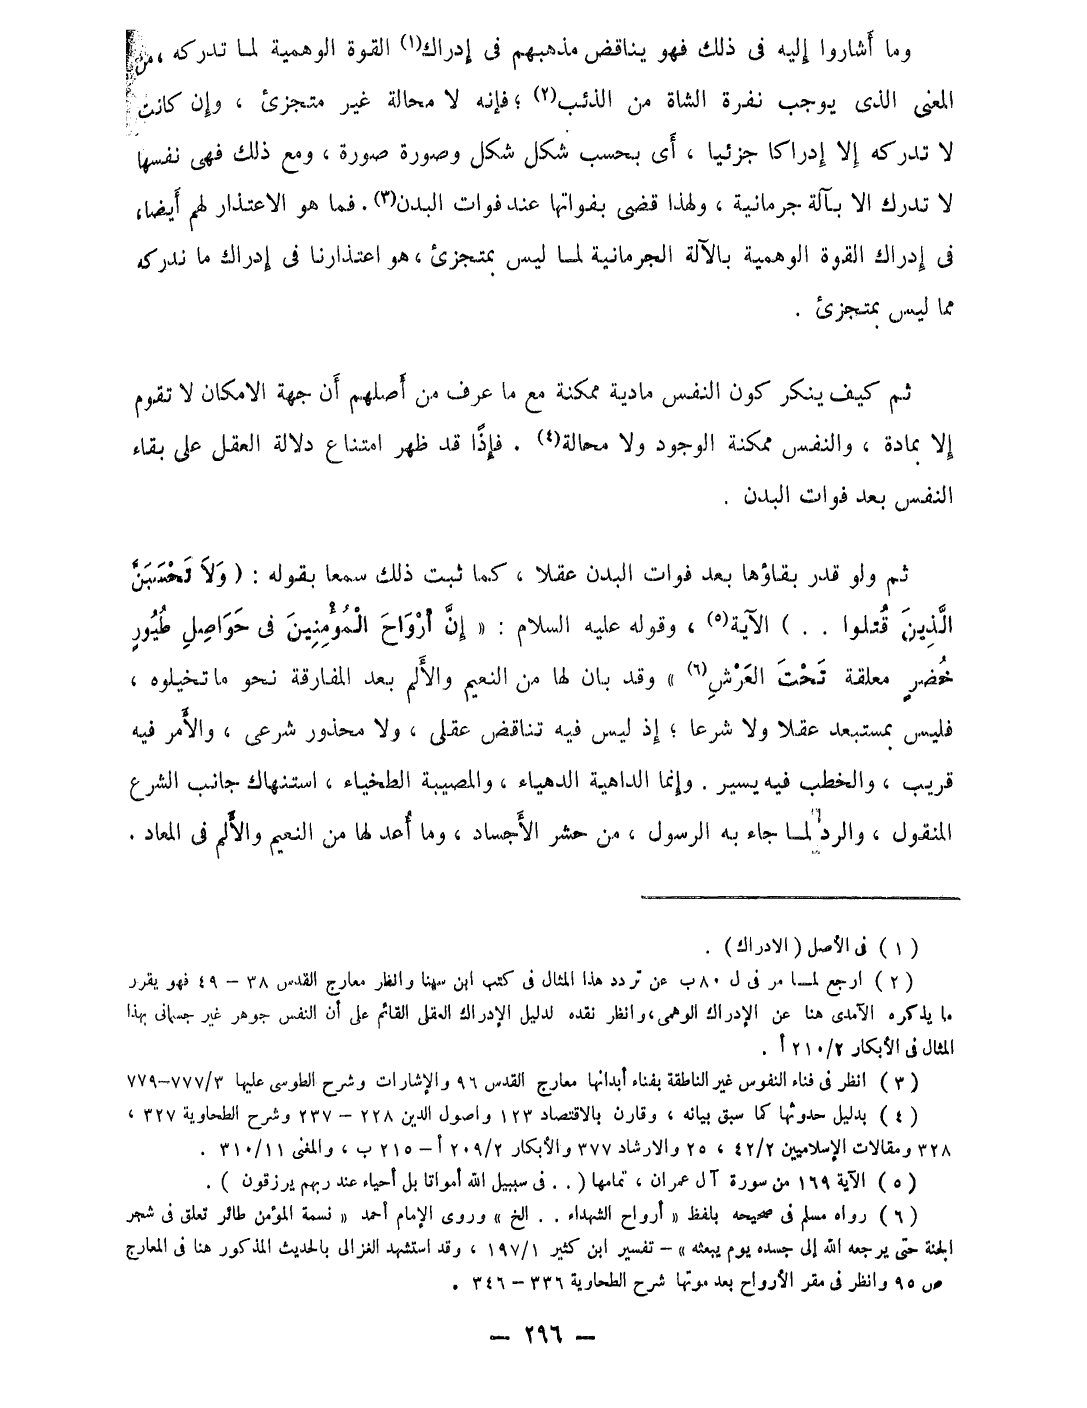 وما أَشاروا إليه فى ذلك فهو يناقض مذهبهم فى إدراك(١) القوة الوهمية لما تدركه ، من
المعنى الذى يوجب نفرة الشاة من الذئب(٢) ؛ فإنه لا محالة غير متجزئ ، وإن كانت
لا تدركه إلا إدراكا جزئيا ، أَى بحسب شكل شكل وصورة صورة ، ومع ذلك فهى نفسها
لا تدرك الا بآلة جرمانية ، ولهذا قضى بفواتها عند فوات البدن(٣) . فما هو الاعتذار لهم أَيضا ،
فى إدراك القوة الوهمية بالآلة الجرمانية لما ليس بمتجزئ ، هو اعتذارنا فى إدراك ما ندركه
مما ليس بمتجزئ .
ثم كيف ينكر كون النفس مادية ممكنة مع ما عرف من أَصلهم أَن جهة الامكان لا تقوم
إلا بمادة ، والنفس ممكنة الوجود ولا محالة(٤) . فإذًا قد ظهر امتناع دلالة العقل على بقاء
النفس بعد فوات البدن .
ثم ولو قدر بقاؤها بعد فوات البدن عقلا ، كما ثبت ذلك سمعا بقوله : ( وَلاَ تَحْسَبَنَّ
الَّذِينَ قُتلوا . . ) الآية(٥) ، وقوله عليه السلام : « إِنَّ أَرْوَاحَ الْمُؤْمِنِينَ فى حَوَاصِلِ طُيُورٍ
خُضرٍ معلقة تَحْتَ العَرْشِ(٦) » وقد بان لها من النعيم والأَلم بعد المفارقة نحو ما تخيلوه ،
فليس بمستبعد عقلا ولا شرعا ؛ إذ ليس فيه تناقض عقلى ، ولا محذور شرعى ، والأَمر فيه
قريب ، والخطب فيه يسير . وإنما الداهية الدهياء ، والمصيبة الطخياء ، استنهاك جانب الشرع
المنقول ، والرد لما جاء به الرسول ، من حشر الأَجساد ، وما أُعد لها من النعيم والأَلم فى المعاد .
( ١ ) فى الأصل ( الادراك ) .
( ٢ ) ارجع لما مر فى ل ٨٠ب عن تردد هذا المثال فى كتب ابن سينا وانظر معارج القدس ٣٨ – ٤٩ فهو يقرر
ما يذكره الآمدى هنا عن الإدراك الوهمى، وانظر نقده لدليل الإدراك العقلى القائم على أن النفس جوهر غير جسمانى بهذا
المثال فى الأبكار ٢١٠/٢ أ .
( ٣ ) انظر فى فناء النفوس غير الناطقة بفناء أبدانها معارج القدس ٩٦ والإشارات وشرح الطوسى عليها ٧٧٧/٣–٧٧٩
( ٤ ) بدليل حدوثها كما سبق بيانه ، وقارن بالاقتصاد ١٢٣ واصول الدين ٢٢٨ – ٢٣٧ وشرح الطحاوية ٣٢٧ ،
٣٢٨ ومقالات الإسلاميين ٤٢/٢ ، ٢٥ والارشاد ٣٧٧ والأبكار ٢٠٩/٢ أ – ٢١٥ ب ، والمغنى ٣١٠/١١ .
( ٥ ) الآية ١٦٩ من سورة آل عمران ، تمامها ( . . فى سبيل الله أمواتا بل أحياء عند ربهم يرزقون ) .
( ٦ ) رواه مسلم فى صحيحه بلفظ « أرواح الشهداء . . الخ » وروى الإمام أحمد « نسمة المؤمن طائر تعلق فى شجر
الجنة حتى يرجعه الله إلى جسده يوم يبعثه » – تفسير ابن كثير ١٩٧/١ ، وقد استشهد الغزالى بالحديث المذكور هنا فى المعارج
ص ٩٥ وانظر فى مقر الأرواح بعد موتها شرح الطحاوية ٣٣٦ – ٣٤٦ .
— ٢٩٦ —